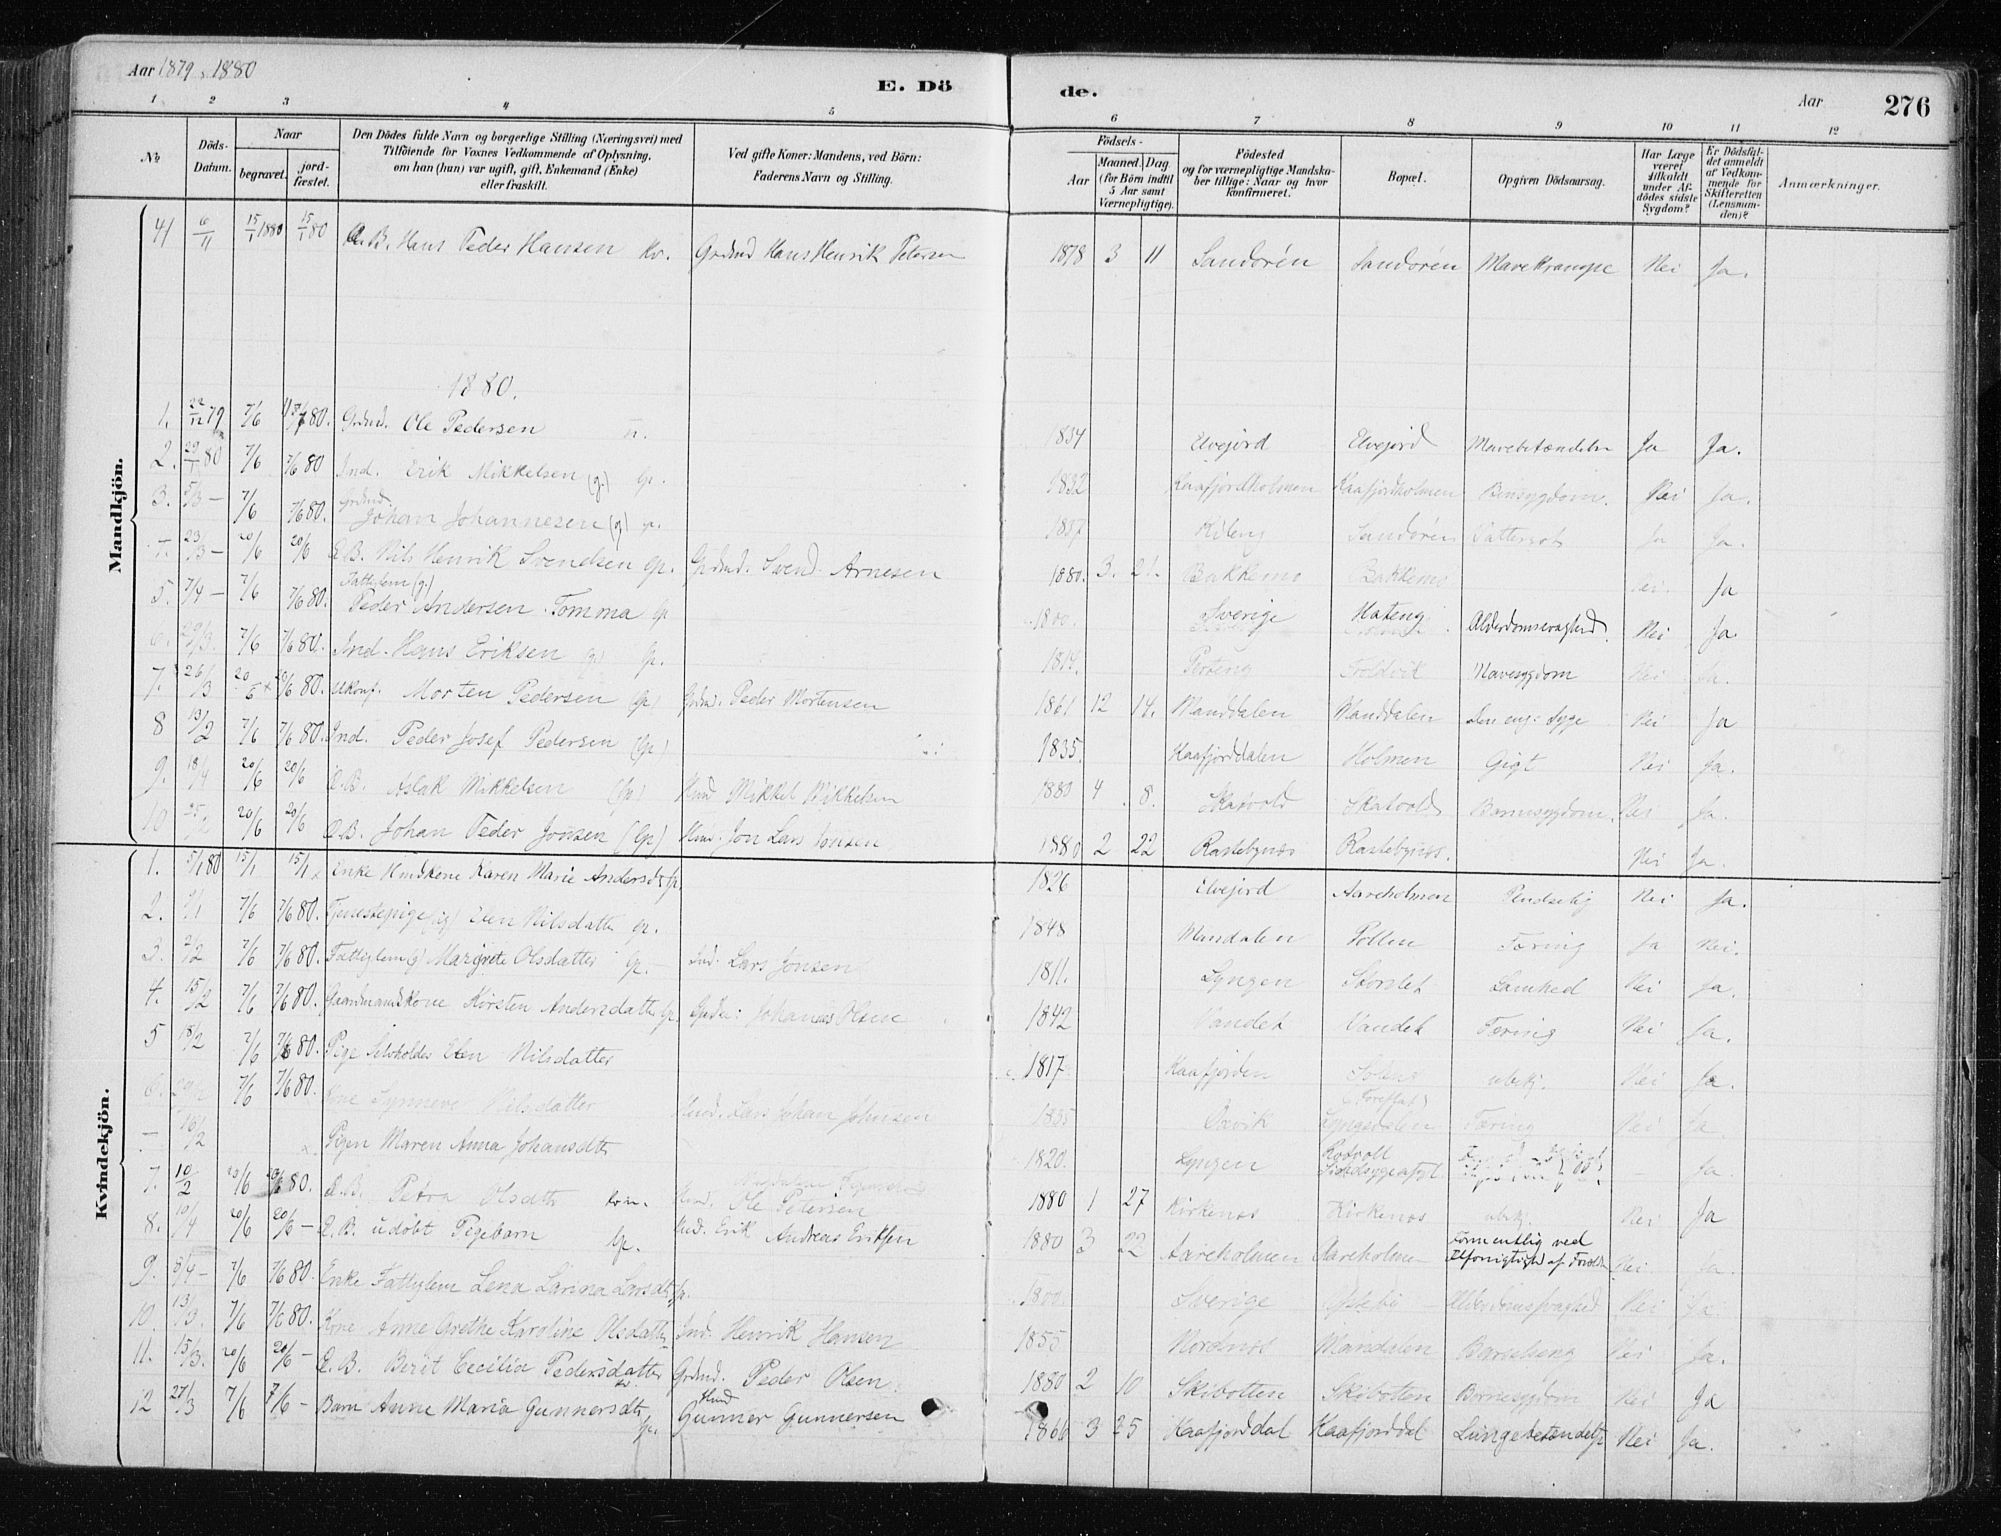 Aar 1879, 1880
E. Dö
de.
Aar
276
1 2 3 4 5 6 7 8 9 10 11 12
No
Döds-Datum.
Naar
begravet.
jord-fæstet.
Den Dödes fulde Navn og borgerlige Stilling (Næringsvei) med
Tilföiende for Voxnes Vedkommende af Oplysning,
om han (hun) var ugift, gift, Enkemand (Enke)
eller fraskilt.
Ved gifte Koner: Mandens, ved Börn:
Faderens Navn og Stilling.
Födsels-
Aar
Maaned. Dag.
(for Börn indtil
5 Aar samt
Værnepligtige).
Födested
og for værnepligtige Mandska-
ber tillige: Naar og hvor
konfirmeret.
Bopæl.
Opgiven Dödsaarsag.
Har Læge
været
tilkaldt
under Af-
dödes sidste
Sygdom?
Er Dödsfal-
det anmeldt
af Vedkom-
mende for
Skifteretten
(Lensman-
den)?
Anmærkninger.
Mandkjön.
41 6/11 15/1 1880 15/1 80 Æ.B. Hans Peder Hansen Kv. Grdmd Hans Henrik Petersen 1878 3 11 Sandören Sandören Mavekrampe Nei Ja.
1880.
1. 22/12 79 7/6 80. Grdmd. Ole Pedersen 1834 Elvejord Elvejord Mavebetændelse Ja Ja.
2. 29/1 80 7/6 7/6 80 Ind. Erik Mikkelsen (g.) Gp. 1832 Kaafjordholmen Kaafjordholmen Nei Ja.
3. 5/3 — 7/6 7/6 80. Grdmd. Johan Johannesen (g) 1837 Kileng Sandören Ja Ja.
23/3 — 20/6 20/6 Æ.B. Nils Henrik Svendsen Gp. Grdmd. Svend Arnesen 1880. 3. 21. Bakkemo Bakkemo Nei. Ja
5. 7/4 — 7/6 7/6 80. Fattiglem (g.) Peder Andersen Tomma Gp 1800. Sverige Hateng Alderdomssvaghed. Nei Ja.
6. 29/3. 7/6 7/6 80. Ind. Hans Eriksen (g) Gp. 1814. Troldvik Mavesygdom Nei Ja.
7. 26/3 20/6 80. Ukonf. Morten Pedersen Gp) Grdmd. Peder Mortensen 1861 12 14. Manddalen Manddalen Den eng: Syge Nei Ja
8 13/2 7/6 7/6 80. Ind. Peder Josef Pedersen (Gp) 1835. Kaafjorddalen Holmen Gigt Nei Ja.
9. 18/4 20/6 20/6 Æ.B. Aslak Mikkelsen (Gp) Hmd Mikkel Mikkelsen 1880 4 8. Skatvold Skatvold Barnesygdom. Nei Ja.
10 25/2 20/6 20/6 Æ.B. Johan Peder Jonsen (Gp) Hmd. Jon Lars Jonsen 1880 2 22 Rastebynæs Rastebynæs. Nei Ja.
Kvindekjön.
1. 5/1 80 15/1 15/1 Enke Karen Marie Andersd. Gp. 1826 Elvejord Aareholmen Pludselig Nei Ja.
2. 7/6 7/6 80. Tjenestepige (ug) Elen Nilsdatter Gp. 1848 Mandalen Pollen Tæring Ja Nei.
3. 2/2 7/6 7/6 80. Fattiglem (g) Margrete Olsdatter Gp. Ind. Lars Jonsen 1811. Lyngen Storslet Lamhed Nei Ja.
4. 15/2 7/6 7/6 80. Gaardmandskone Kirsten Andersdatter Gp. Grdm: Johannes Olsen 1842 Vandet Vandet Tæring Nei Ja.
5 18/2 7/6 7/6 80. Pige Selvholder Elen Nilsdatter 1817 Kaafjorden ubekj. Nei Ja.
6. 7/6 7/6 80. Kone Synneve Nilsdatter Hmd. Lars Johan Johnsen 1835 Lyngsdalen Tæring Nei Ja.
— 16/2 Pigen Maren Anna Johansdtr 1820. Lyngen — Ja.
7. 10/2 20/6 20/6 80. Æ.B. Petra Olsdatter Hmd. Ole Petersen 1880 1 27 Kirkenæs Kirkenæs ubekj. Nei Ja
8. 10/4 20/6 20/6 — Æ.B. udøbt Pigebarn Gp. Hmd. Erik Andreas Eriksen 1880 3 22 Aareholmen Aareholmen Formentlig ved Uforsigtighed af Forældr. Nei. Ja.
9. 8/4 — 7/6 7/6 80. Enke Fattiglem Lena Larina Larsdtr Gp. 1800. Sverige Alderdomssvaghed Nei Ja.
10. 13/3. 7/6 7/6 80. Kone Anne Grethe Karoline Olsdatter Ind. Henrik Hansen 1855 Nordnæs Mandalen Barselseng Nei Ja.
11. 15/3. 20/6 20/6 — Æ.B. Berit Cecilia Pedersdatter Grdmd. Peder Olsen 1880 2 10 Skibotten Skibotten Børnesygdom Nei Ja
12 27/3 7/6 7/6 — Barn Anne Maria Gunnersdtr Gp. Hmd Gunner Gunnersen 1866 3 25 Kaafjorddal Kaafjorddal Lungebetændelse Nei Ja.